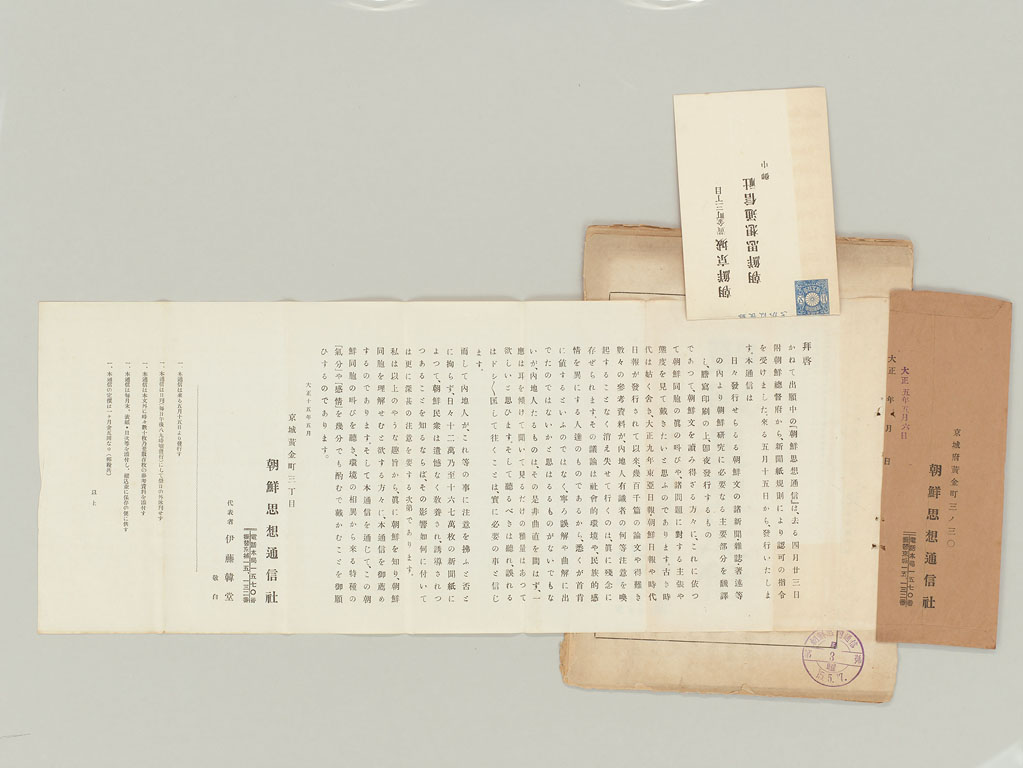 大正五年五月六日
大正　年　月　日
京城府黃金町三ノ三〇
朝鮮思想通信社
電話本局一五七〇番
朝鮮京城黃金町三丁目
朝鮮思想通信社
御中
拜啓
かねて出願中の「朝鮮思想通信」は、去る四月廿三日
附朝鮮總督府から、新聞紙規則により認可の指令
を受けました。來る五月十五日から、發行いたしま
す。本通信は
日々發行せらるる朝鮮文の諸新聞・雜誌著述等
の内より朝鮮研究に必要なる主要部分を飜譯
し、謄寫印刷の上、卽夜發行するもの
であつて、朝鮮文を讀み得ざる方々に、これに依つ
て朝鮮同胞の眞の叫びや、諸問題に對する主張や
態度を見て戴きたいと思ふのであります。古き時
代は姑く舍き、大正九年東亞日報、朝鮮日報や時代
日報が發行されて以來、幾百千篇の論文や得難き
數々の參考資料が、内地人有識者の何等注意を喚
起することなく消え失せて行くのは、眞に殘念に
存ぜられます。その議論は社會的環境や、民族的感
情を異にする人達のものであるから、悉くが首肯
に値するといふのではなく、寧ろ誤解や曲解に出
でたのではないかと思はるるものがないでもな
いが、内地人たるものは、その是非曲直を問はず、一
應は耳を傾けて聞いて見るだけの雅量はあつて
欲しいと思ひます。そして聽るべきは聽れ、誤れる
はドシ〱匡して往くことは、實に必要の事と信じ
ます。
而して内地人が、これ等の事に注意を拂ふと否と
に拘らず、日々十二萬乃至十六七萬枚の新聞紙に
よつて、朝鮮民衆は遺憾なく敎養され、誘導されつ
つあることを知るならば、その影響如何に付いて
は更に深甚の注意を要する次第であります。
私は以上のやうな趣旨から、眞に朝鮮を知り、朝鮮
同胞を理解せむと欲する方々に、本通信を御薦め
するのであります。そして本通信を通じて、この朝
鮮同胞の叫びを聽き、環境の相異から來る特種の
「氣分」や「感情」を幾分でも酌むで戴かむことを御願
ひするのであります。
大正十五年五月
京城黃金町三丁目
朝鮮思想通信社
電話本局一五七〇番
代表者　伊藤韓堂
敬白
一、本通信は來る五月十五日より發行す
以上
3
15.5.7.